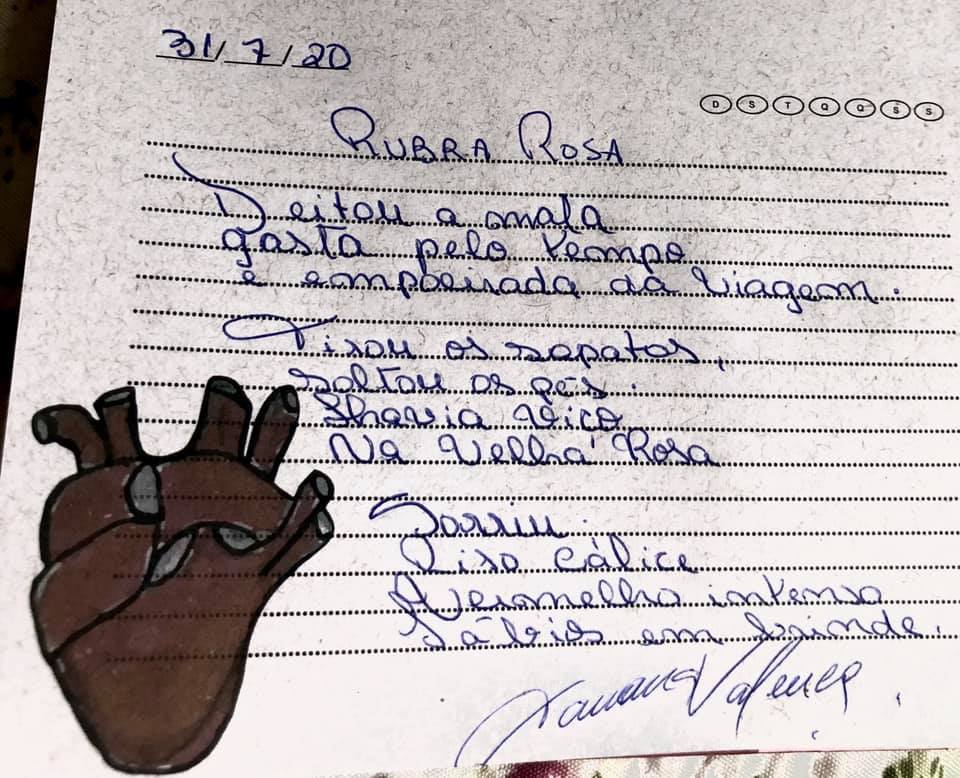 31/7/20
D S T Q Q S S
RUBRA ROSA
Deitou a mala
gasta pelo tempo
e empoeirada da viagem.
Tirou os sapatos,
soltou os pés.
Havia viço
Na Velha Rosa
Sorriu.
Riso cálice
Vermelho intenso
Lábios em brinde.
Valença